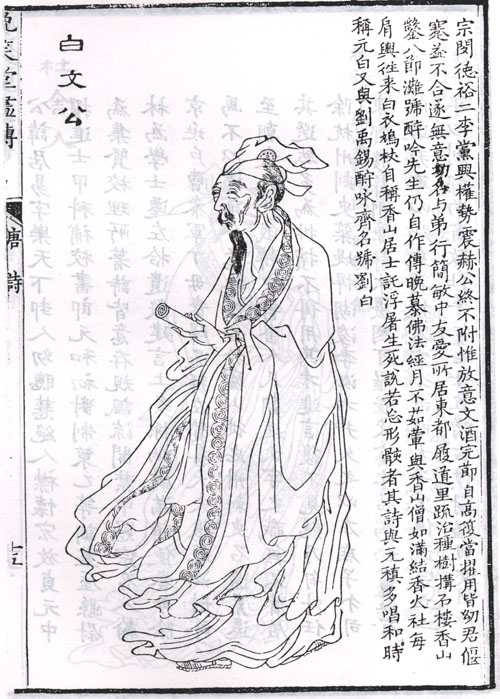 宗閔德裕二李黨興權勢震赫公終不附惟放意文酒完節自高復當擢用皆幼君偃
蹇益不合遂無意功名与弟行簡敏中友愛所居東都履道里疏沼種樹搆石樓香山
鑿八節灘號醉吟先生仍自作傳晚慕佛法經月不茹葷與香山僧如滿結香火社每
肩輿往来白衣鳩杖自稱香山居士託浮屠生死說若忘形骸者其詩與元稹多唱和時
稱元白又與劉禹錫酧咏齊名號劉白
白文公
笑堂畫傳
唐詩